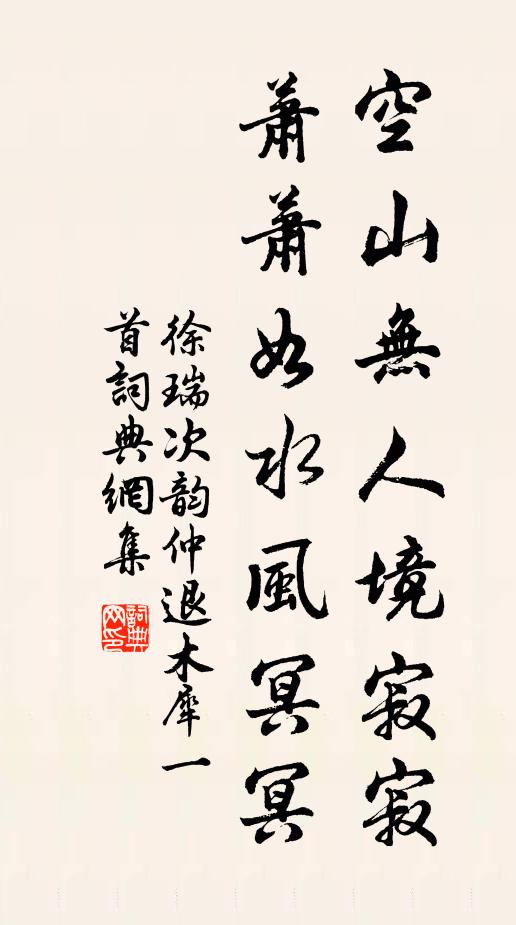 空山無人境寂寂
蕭蕭如水風冥冥
徐瑞次韵仲退木犀一
首詞典網集
詞典
网印